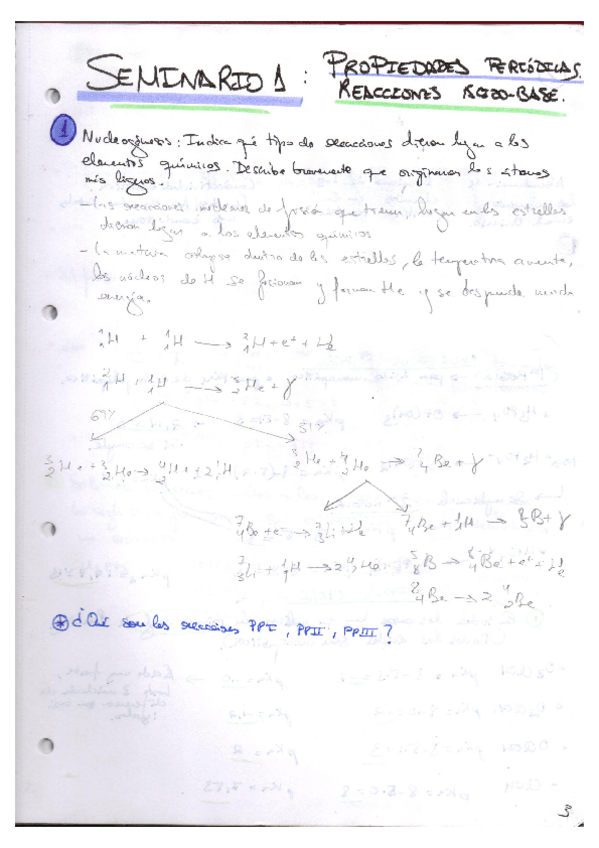 SEMINARIO 1: PROPIEDADES PERIÓDICAS.
REACCIONES ÁCIDO-BASE.
1 Nucleogénesis: Indica qué tipo de reacciones dieron lugar a los
elementos químicos. Describe brevemente que originaron los átomos
más ligeros.
- Las reacciones nucleares de fusión que tienen lugar en las estrellas
dieron lugar a los elementos químicos
- La materia colapsa dentro de las estrellas, la temperatura aumenta,
los núcleos de H se fusionan y forman He y se desprende mucha
energía.
¹₁H + ¹₁H → ²₁H + e⁺ +
²₁H + ¹₁H → ³₂He + γ
69% 31%
³₂He + ³₂He → ⁴₂H + 2 ¹₁H ³₂He + ⁴₂He → ⁷₄Be + γ
⁷₄Be + e⁻ → ⁷₃Li ⁷₄Be + ¹₁H → ⁸₅B + γ
⁷₃Li + ¹₁H → 2 ⁴₂He ⁸₄Be + e⁺ +
⁸₄Be → 2 ⁴₂Be
* ¿Qué son las reacciones PPI, PPII, PPIII?
3